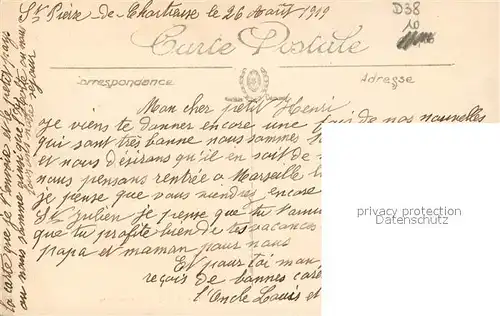 St Pierre de Chartreuse le 26 Août 1919
D38
10
Carte Postale
Correspondance
Adresse
Mon cher petit Henri
Je viens te donner encore une fois de nos nouvelles
qui sont très bonne nous sommes
et nous désirons qu'il en soit de
nous pensons rentrée à Marseille
je pense que vous viendrez encore
St Julien je pense que tu t'amu
que tu profite bien de tes vacances
papa et maman pour nous
Et pour toi mon
reçois de bonnes care
l'Oncle Louis et
la carte que je t'envoie et le petit pays
ou nous somme ainsi que l'hotel ou nous
séjour
privacy protection
Datenschutz